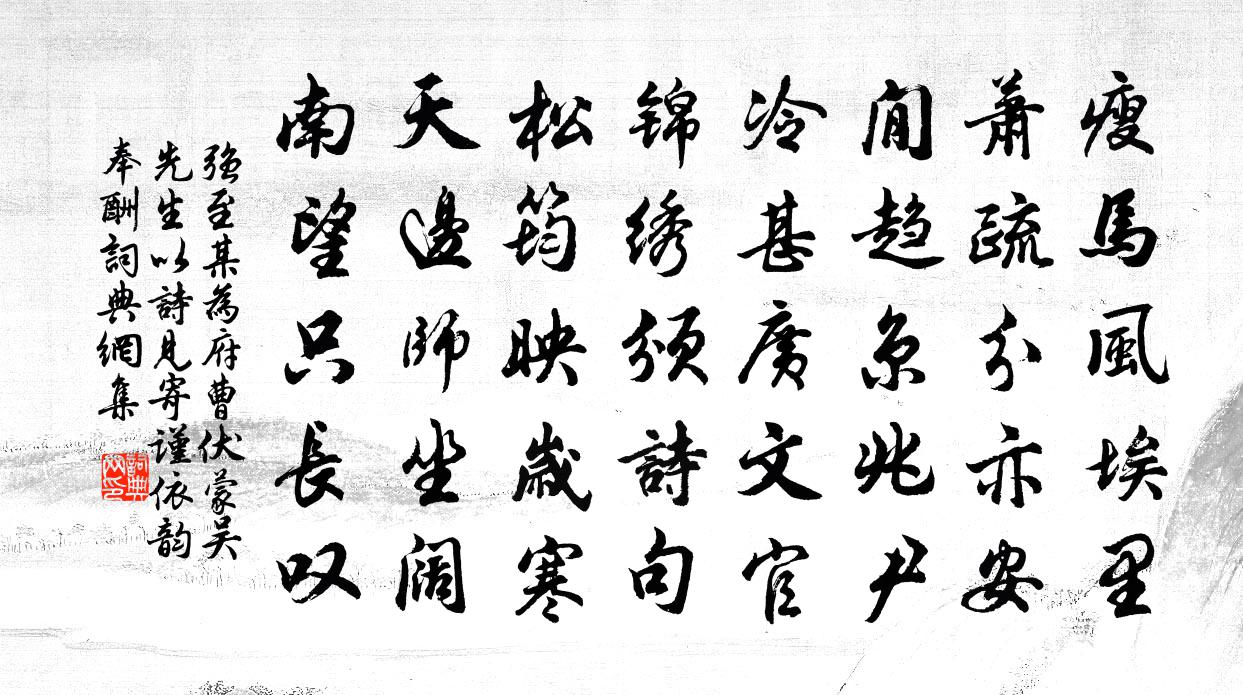 瘦馬風埃里
蕭疏分亦安
閒趨京兆尹
冷甚廣文官
锦绣頒詩句
松筠映歲寒
天邊師坐闊
南望只長叹
強至某為府曹伏蒙吴
先生以詩見寄謹依韵
奉酬詞典網集
詞典網印